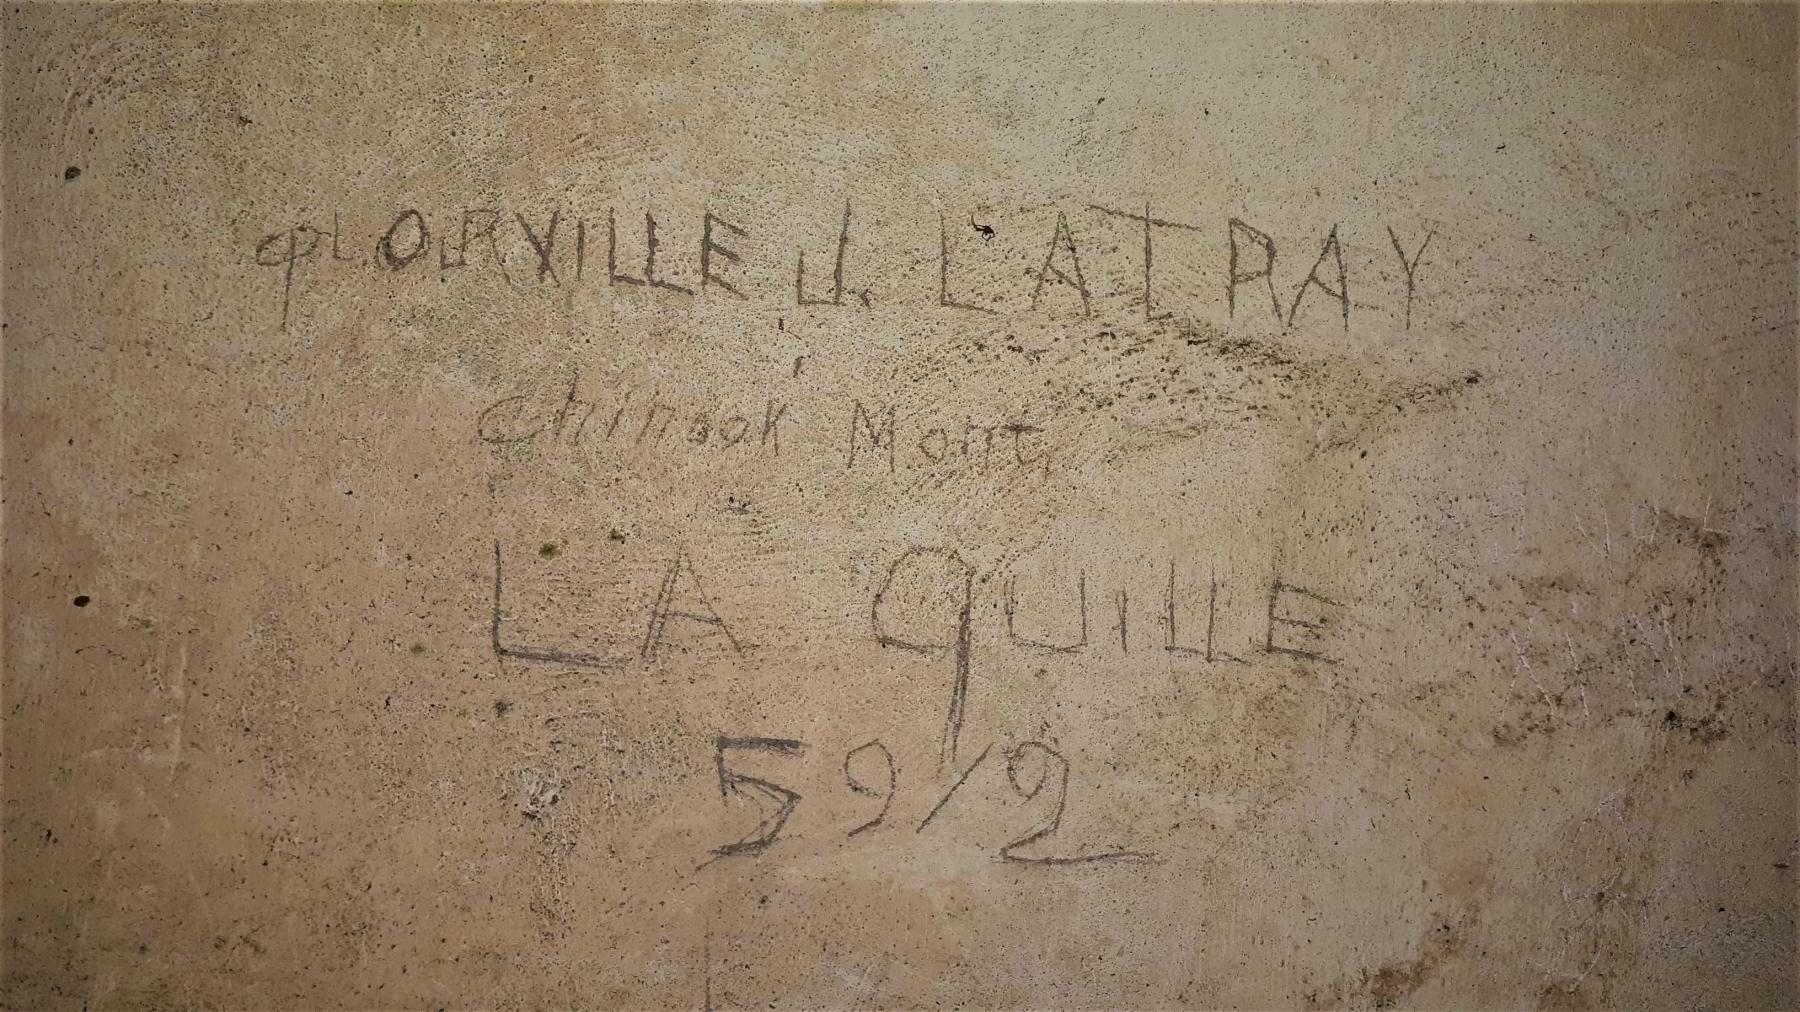 ORVILLE J. LATRAY
Chinook Mont.
LA QUILLE
59/2